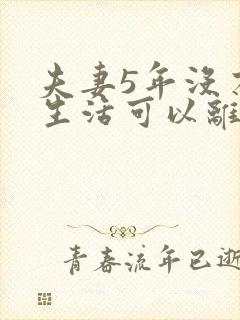 夫妻5年没
生活可以離
青春流年已逝